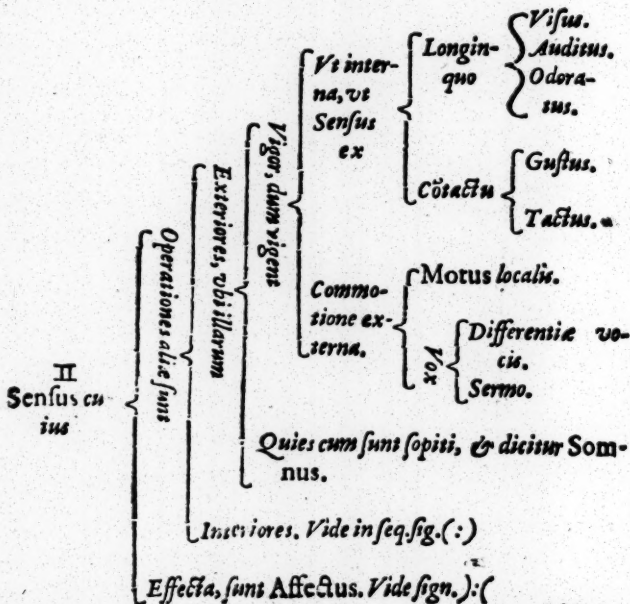 II
Senſus cu
ius
Operationes aliæ ſunt
Exteriores, vbi illarum
Vigor, dum vigent
Vt inter-
na, vt
Senſus
ex
Longin-
quo
Viſus.
Auditus.
Odora-
tus.
Cōtactu
Guſtus.
Tactus.
Commo-
tione ex-
terna.
Motus localis.
Vox
Differentiæ vo-
cis.
Sermo.
Quies cum ſunt ſopiti, & dicitur Som-
nus.
Interiores. Vide in ſeq. ſig. (:)
Effecta, ſunt Affectus. Vide ſign. ):(